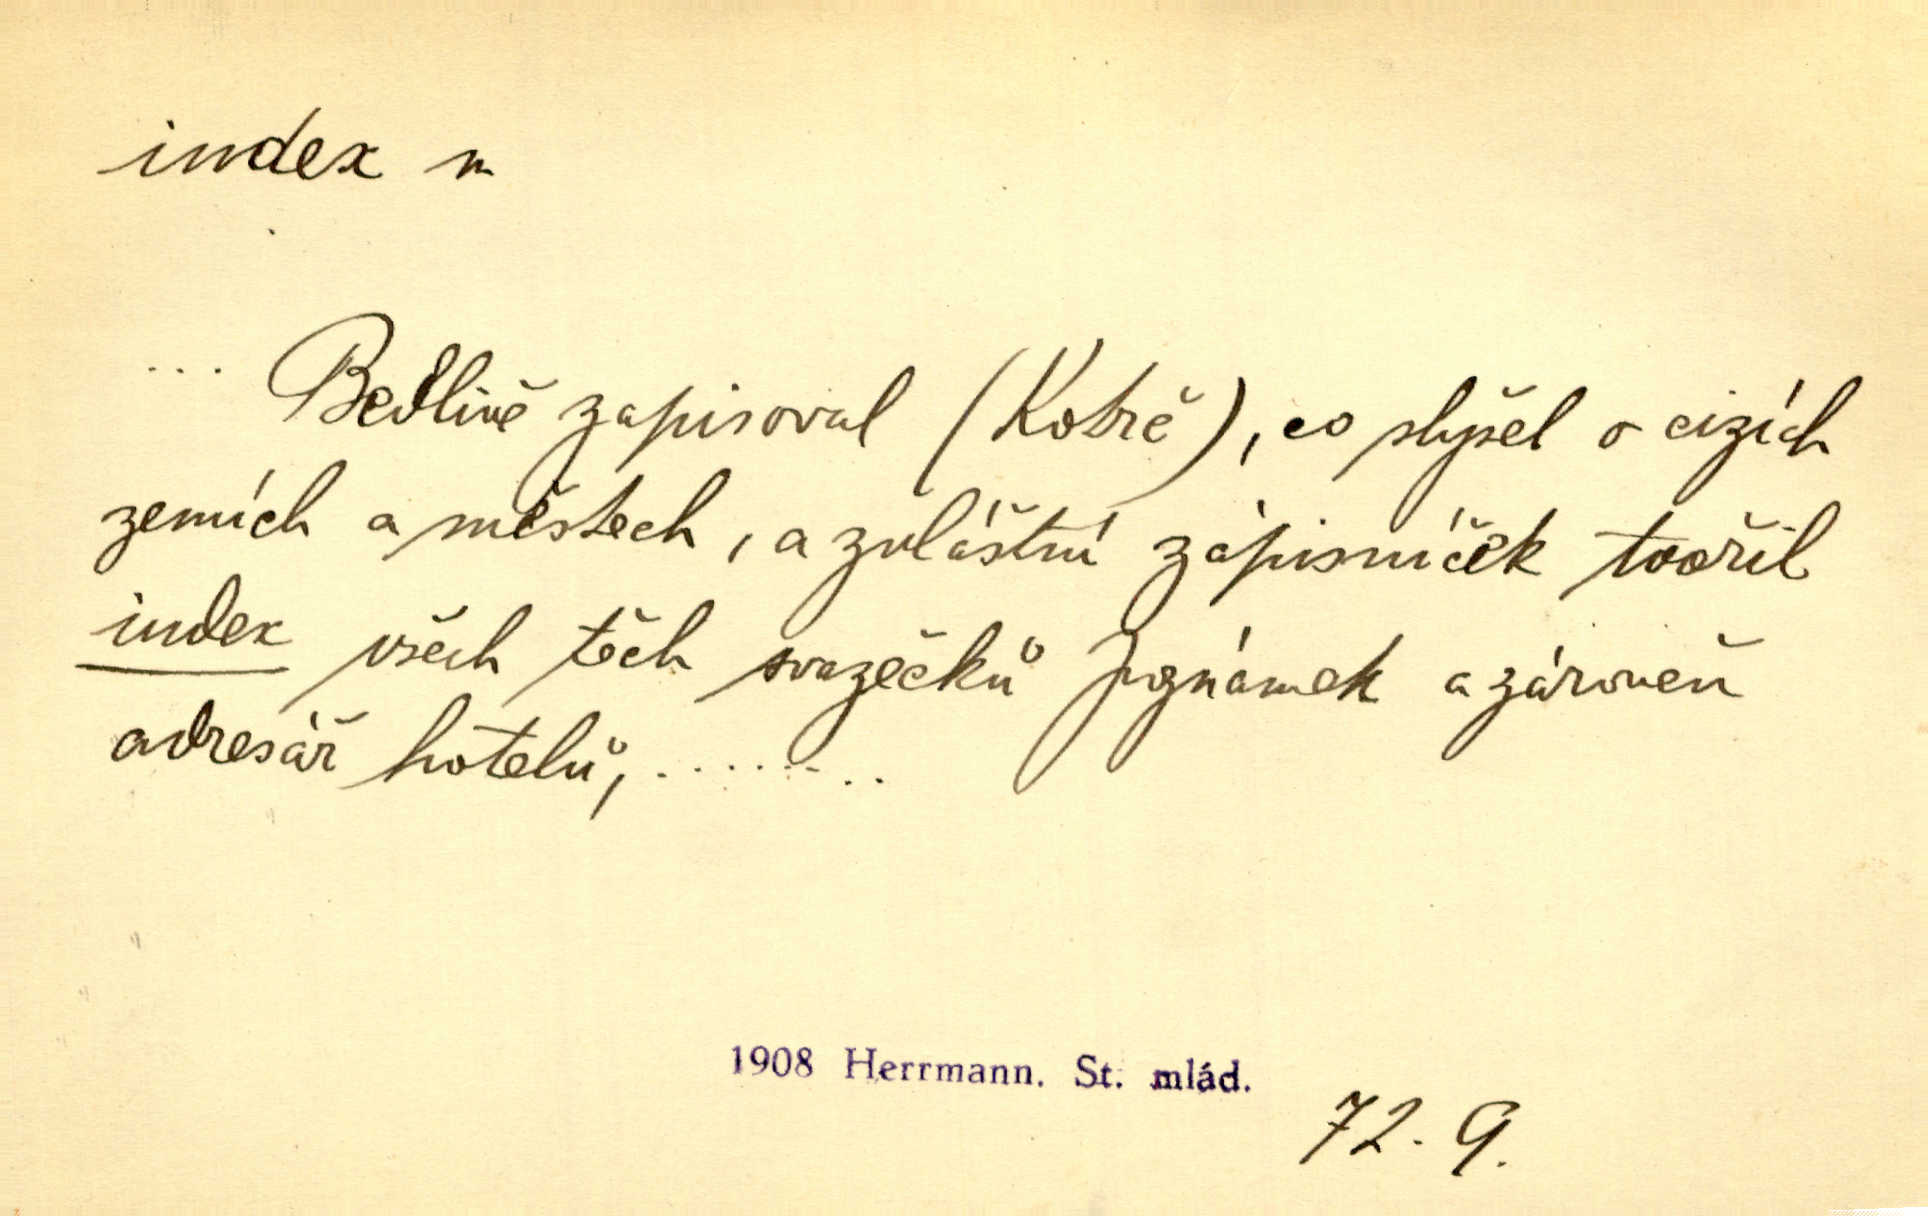 index m
... Bedlivě zapisoval (Kobrč), co slyšel o cizích
zemích a městech, a zvláštní zápisníček tvořil
index všech těch svazečků poznámek a zároveň
adresář hotelů, ........
1908 Herrmann. St. mlád.
72. 9.